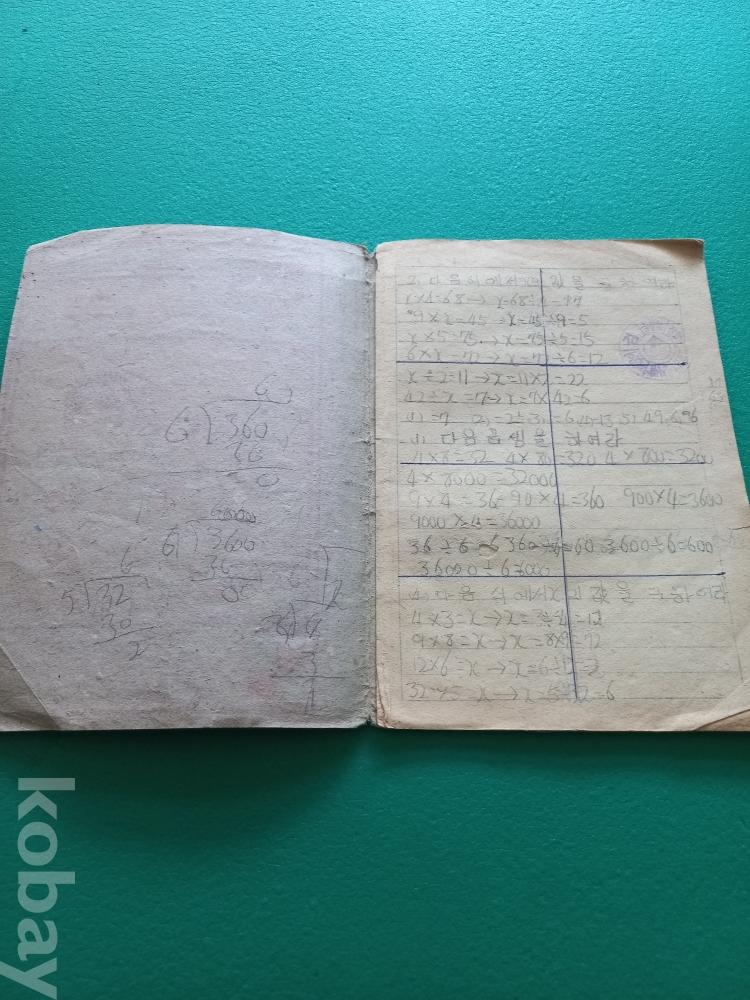 60
6)360
60
0
60000
6)3600
36
00
6
5)32
30
2
3)4
3
1
2. 다음 식에서 x의 값을 구하여라
x×4=68→x=68÷4=17
9×x=45→x=45÷9=5
x×5=75→x=75÷5=15
6×x=72→x=72÷6=12
x÷2=11→x=11×2=22
42÷x=7→x=7×42=6
(1) 다음 곱셈을 하여라
4×8=32 4×80=320 4×800=3200
4×8000=32000
9×4=36 90×4=360 900×4=3600
9000×4=36000
36÷6=6 360÷6=60 3600÷6=600
36000÷6
다음 식에서 x의 값을 구하여라
4×3=x→x=3÷4=12
9×8=x→x=8×9=72
12×6=x→x=6÷12=2
kobay